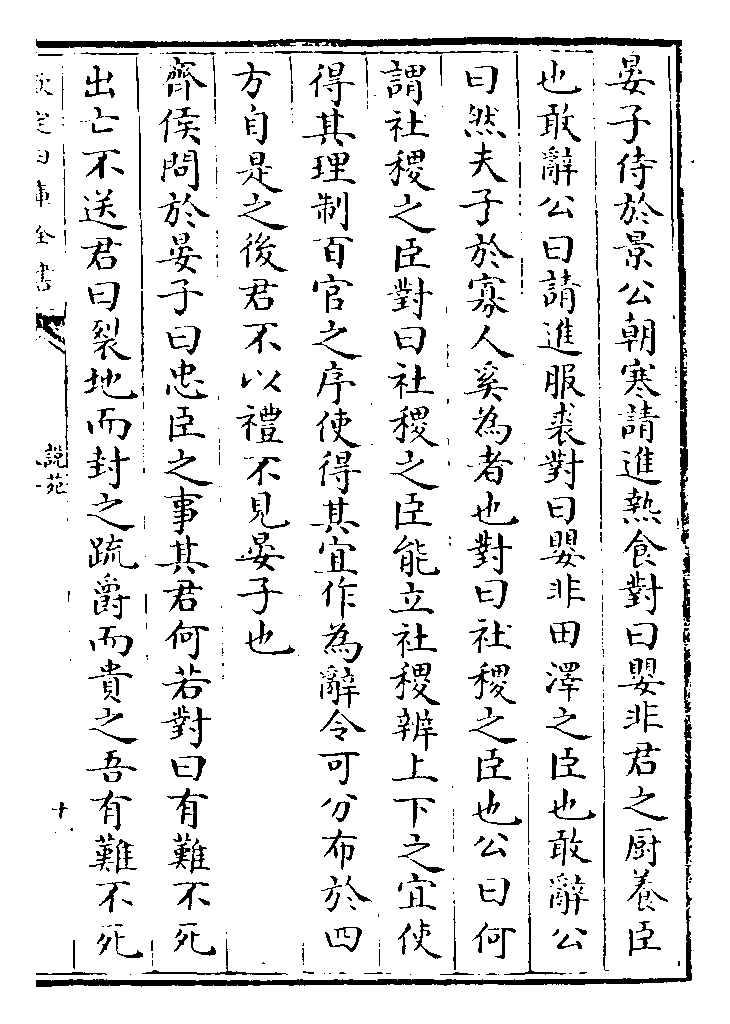 晏子侍於景公朝寒請進熱食對曰嬰非君之厨養臣
也敢辭公曰請進服裘對曰嬰非田澤之臣也敢辭公
曰然夫子於寡人奚為者也對曰社稷之臣也公曰何
謂社稷之臣對曰社稷之臣能立社稷辨上下之宜使
得其理制百官之序使得其宜作為辭令可分布於四
方自是之後君不以禮不見晏子也
齊侯問於晏子曰忠臣之事其君何若對曰有難不死
出亡不送君曰裂地而封之疏爵而貴之吾有難不死
欽定四庫全書
說苑
十